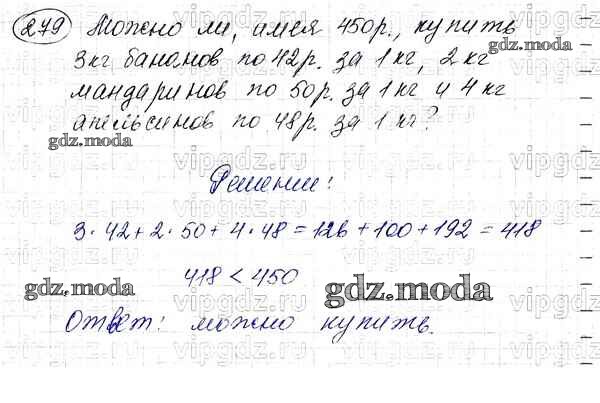 279 Можно ли, имея 450р., купить
3кг бананов по 42р. за 1 кг, 2 кг
мандаринов по 50р. за 1 кг и 4 кг
апельсинов по 48р. за 1 кг?
Решение:
3·42+2·50+4·48=126+100+192=418
418<450
Ответ: можно купить.
gdz.moda
gdz.moda
gdz.moda
gdz.moda
vipgdz.ru